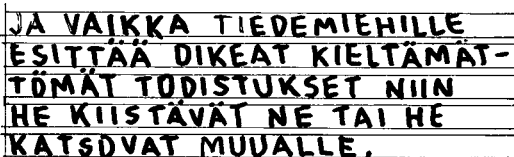 JA VAIKKA TIEDEMIEHILLE
ESITTÄÄ OIKEAT KIELTÄMÄT-
TÖMÄT TODISTUKSET NIIN
HE KIISTÄVÄT NE TAI HE
KATSOVAT MUUALLE.